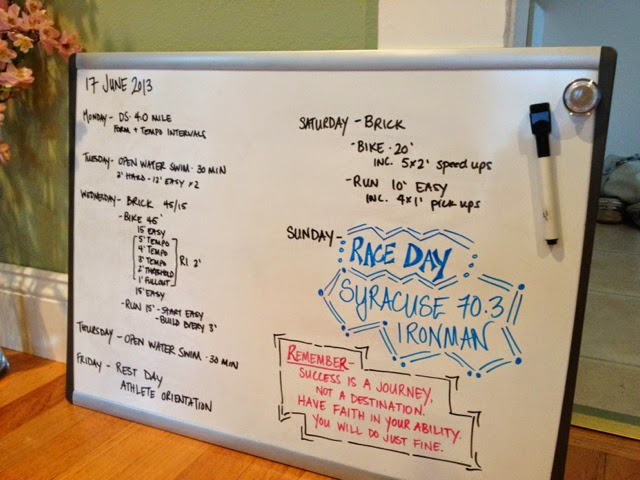 17 JUNE 2013
MONDAY - DS: 4.0 MILE
FORM + TEMPO INTERVALS
TUESDAY - OPEN WATER SWIM · 30 MIN
2' HARD - 12' EASY x2
WEDNESDAY - BRICK 45/15
- BIKE 45'
15' EASY
5' TEMPO
4' TEMPO
3' TEMPO
2' THRESHOLD
1' FULLOUT
RI 2'
15' EASY
- RUN 15' - START EASY
- BUILD EVERY 3'
THURSDAY - OPEN WATER SWIM · 30 MIN
FRIDAY - REST DAY
ATHLETE ORIENTATION
SATURDAY - BRICK
- BIKE · 20'
INC. 5x2' speed ups
- RUN 10' EASY
INC. 4x1' pick ups
SUNDAY - RACE DAY
SYRACUSE 70.3
IRONMAN
REMEMBER -
SUCCESS IS A JOURNEY,
NOT A DESTINATION.
HAVE FAITH IN YOUR ABILITY.
YOU WILL DO JUST FINE.